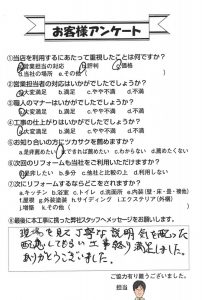 お客様アンケート
①当店を利用するにあたって重視したことは何ですか?
a.営業担当の対応 b.評判 c.価格
d.当社の場所 e.その他( )
②営業担当者の対応はいかがでしたでしょうか?
a.大変満足 b.満足 c.やや不満 d.不満
③職人のマナーはいかがでしたでしょうか?
a.大変満足 b.満足 c.やや不満 d.不満
④工事の仕上がりはいかがでしたでしょうか?
a.大変満足 b.満足 c.やや不満 d.不満
⑤お知り合いの方にツカサケを薦めますか?
a.是非薦めたい b.できれば薦めたい c.わからない d.薦めたくない
⑥次回のリフォームも当社をご利用いただけますか?
a.是非したい b.多分 c.他社と比較の上 d.利用しない
⑦次にリフォームするならどこをされますか?
a.キッチン b.浴室 c.トイレ d.洗面所 e.内装(壁・床・畳・襖他)
f.屋根 g.外装塗装 h.サイディング i.エクステリア(外構)
j.増築 k.その他( )
⑧最後に本工事に携った弊社スタッフへメッセージをお願いします。
現場を見て丁寧な説明 気を配った
配慮してもらい工事終り満足しました。
ありがとうございました。
ご協力有り難うございました。
担当